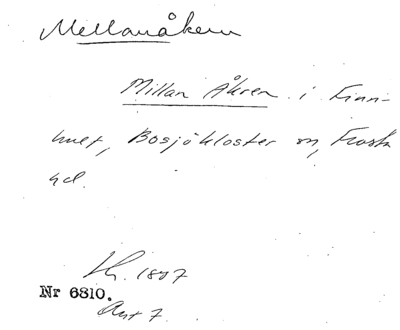 Mellanåkern
Millan Åkren i Finn-
hult, Bosjökloster sn, Frosta
hd.
1807
Nr 6810.
Akt 7.